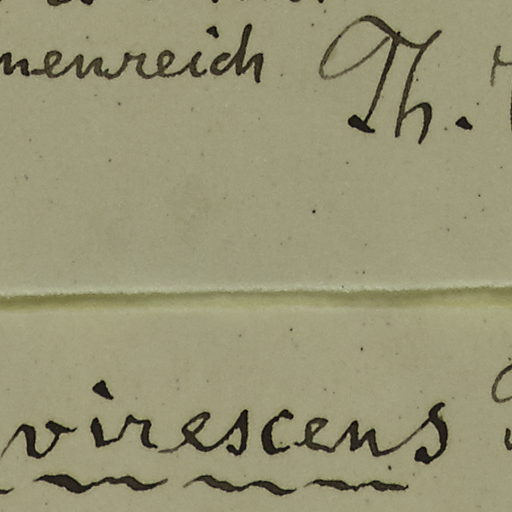 menreich Th.
virescens